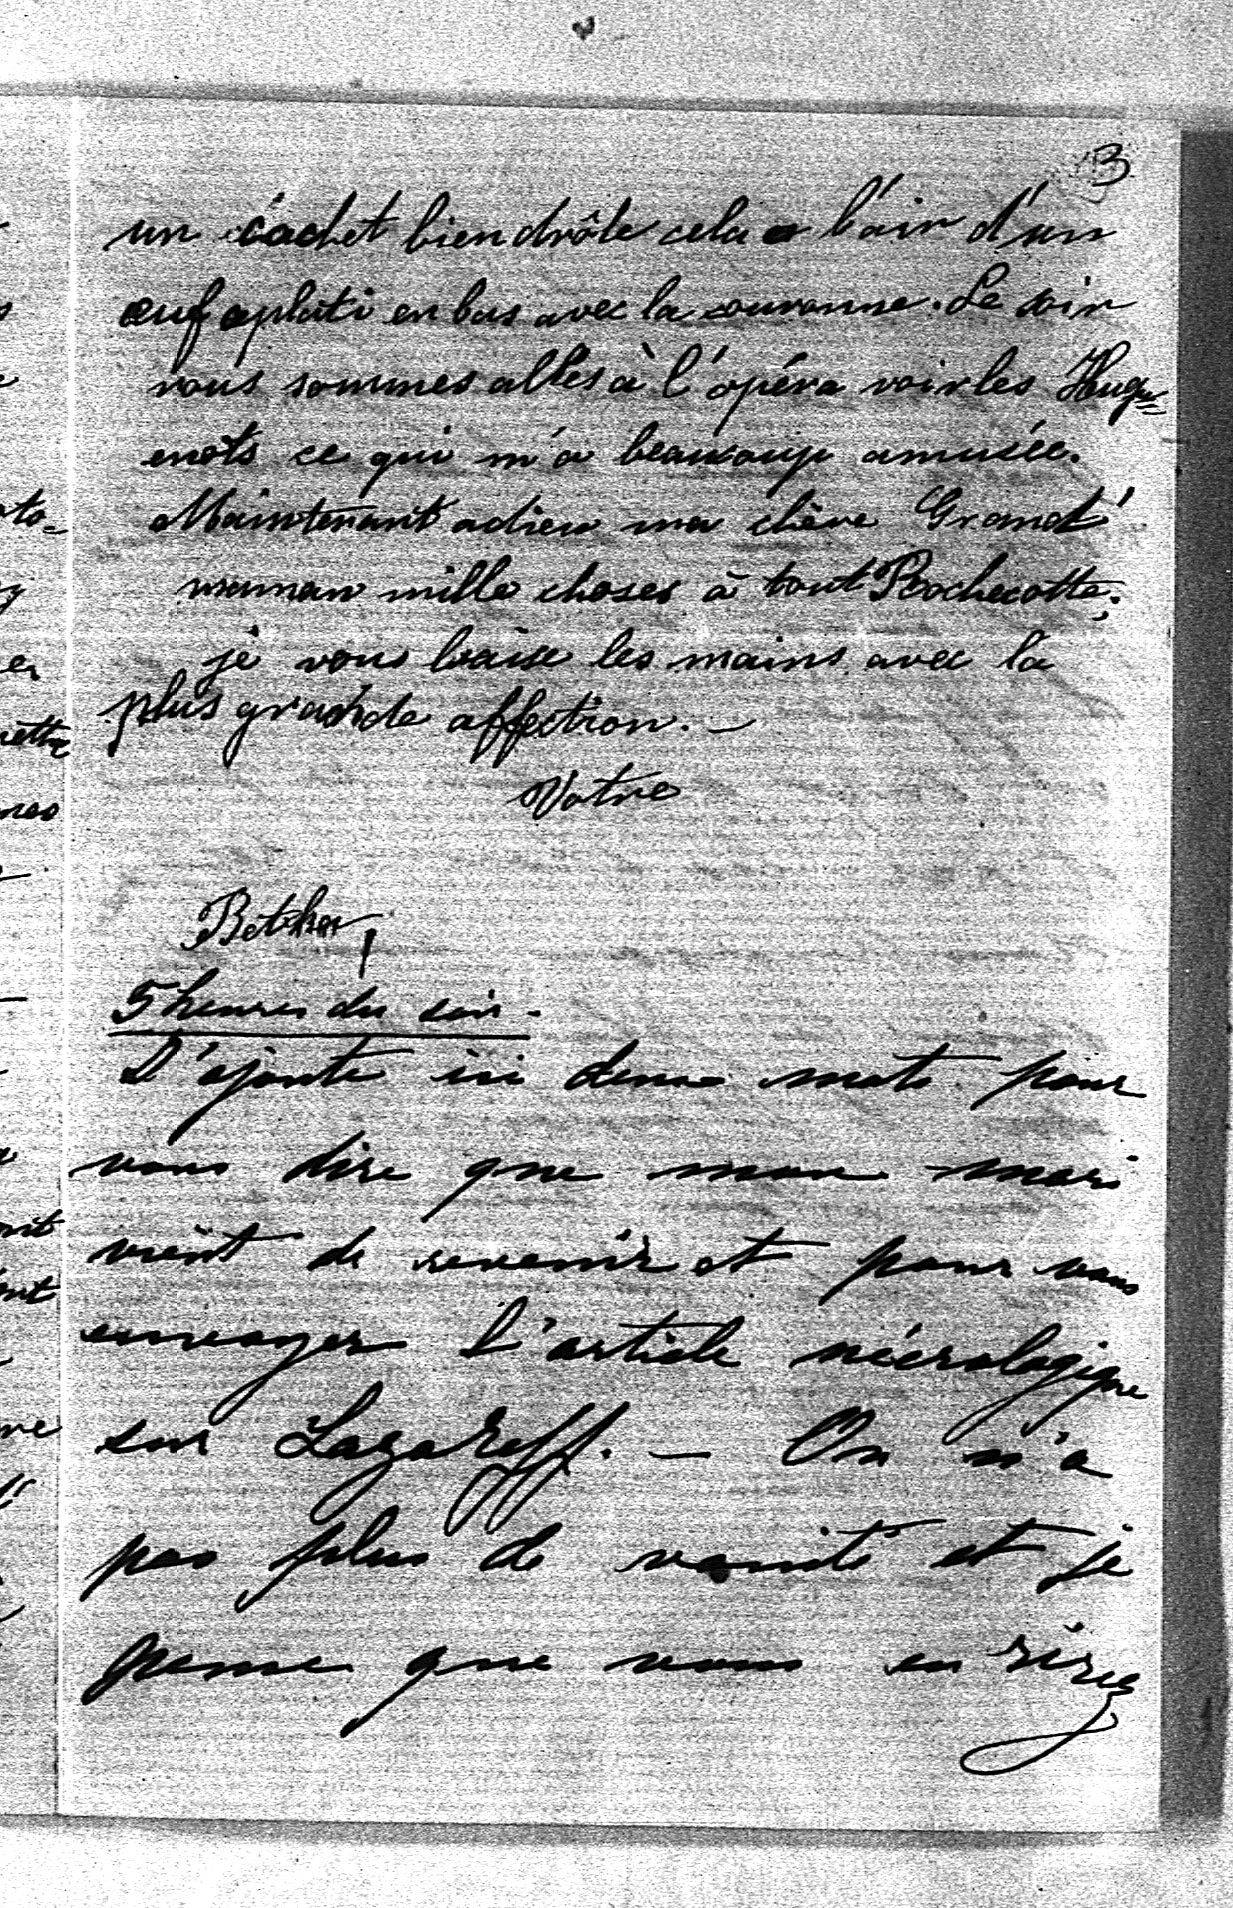 3
un cachet bien drôle cela a l'air d'un
œuf aplati en bas avec la couronne. Le soir
nous sommes allés à l'opéra voir les Hugu=
enots ce qui m'a beaucoup amusée.
Maintenant adieu ma chère Grand'
maman mille choses à tout Rochecotte.
je vous baise les mains avec la
plus grande affection. —
Votre
5 heures du soir.
J'ajoute ici deux mots pour
vous dire que mon mari
vient de revenir et pour vous
envoyer l'article nécrologique
sur Lazareff. — On n'a
pas plus de vanité et je
pense que vous en rirez